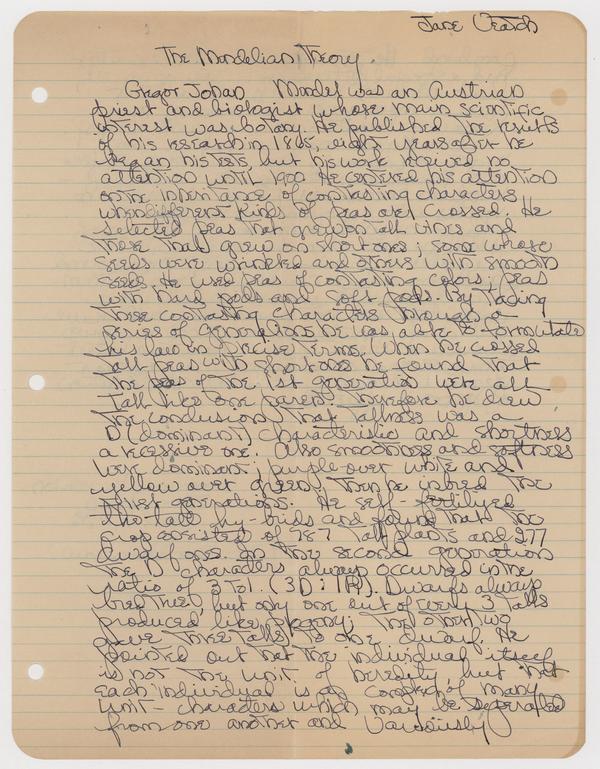 Jane Veatch
The Mendelian Theory.
Gregor Johan Mendel was an Austrian
priest and biologist whose main scientific
interest was botany. He published the results
of his research in 1865, eight years after he
began his tests, but his work received no
attention until 1900. He centered his attention
on the inheritance of contrasting characters
when different kinds of peas are crossed. He
selected peas that grew on tall vines and
those that grew on short ones; some whose
seeds were wrinkled and others with smooth
seeds. He used peas of contrasting colors; peas
with hard pods and soft pods. By tracing
these contrasting characters through a
series of generations he was able to formulate
his law in precise terms. When he crossed
tall peas with short ones he found that
the peas of the 1st generation were all
tall like one parent. Therefore he drew
the conclusion that tallness was a
D (dominant) characteristic and shortness
a recessive one. Also smoothness and softness
were dominant; purple over white and
yellow over green. Then he inbred the
first generations. He self-fertilized
the tall hy-brids and found that the
crop consisted of 787 tall plants and 277
dwarf ones. In the second generation
the D characters always occurred in the
ratio of 3 to 1. (3D:1R). Dwarfs always
bred true, but only one out of every 3 talls
produced like progeny; the other two
gave three talls to one dwarf. He
pointed out that the individual itself
is not the unit of heredity, but that
each individual is a complex of many
unit-characters which may be seperated
from one another and variously